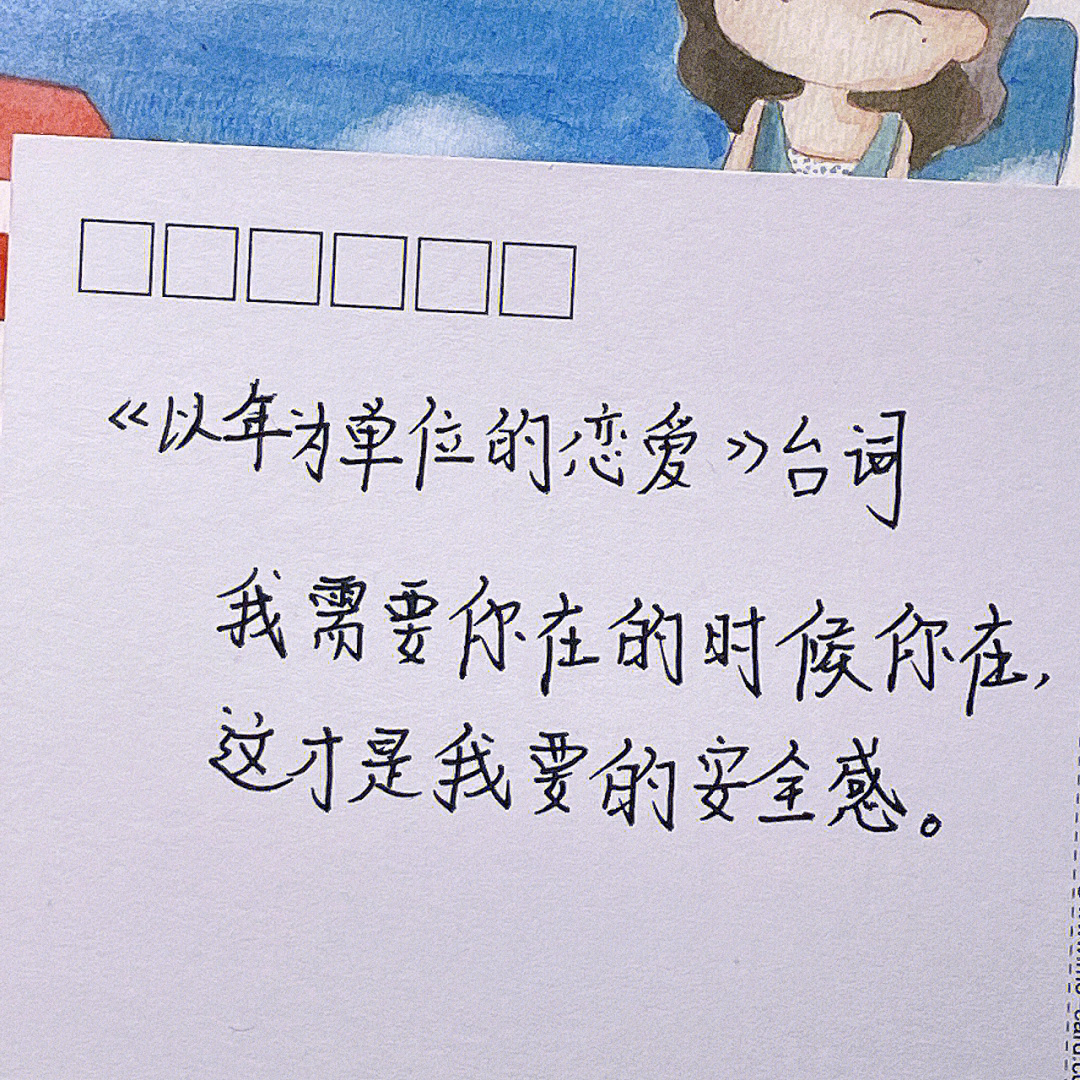 《以年为单位的恋爱》台词
我需要你在的时候你在，
这才是我要的安全感。